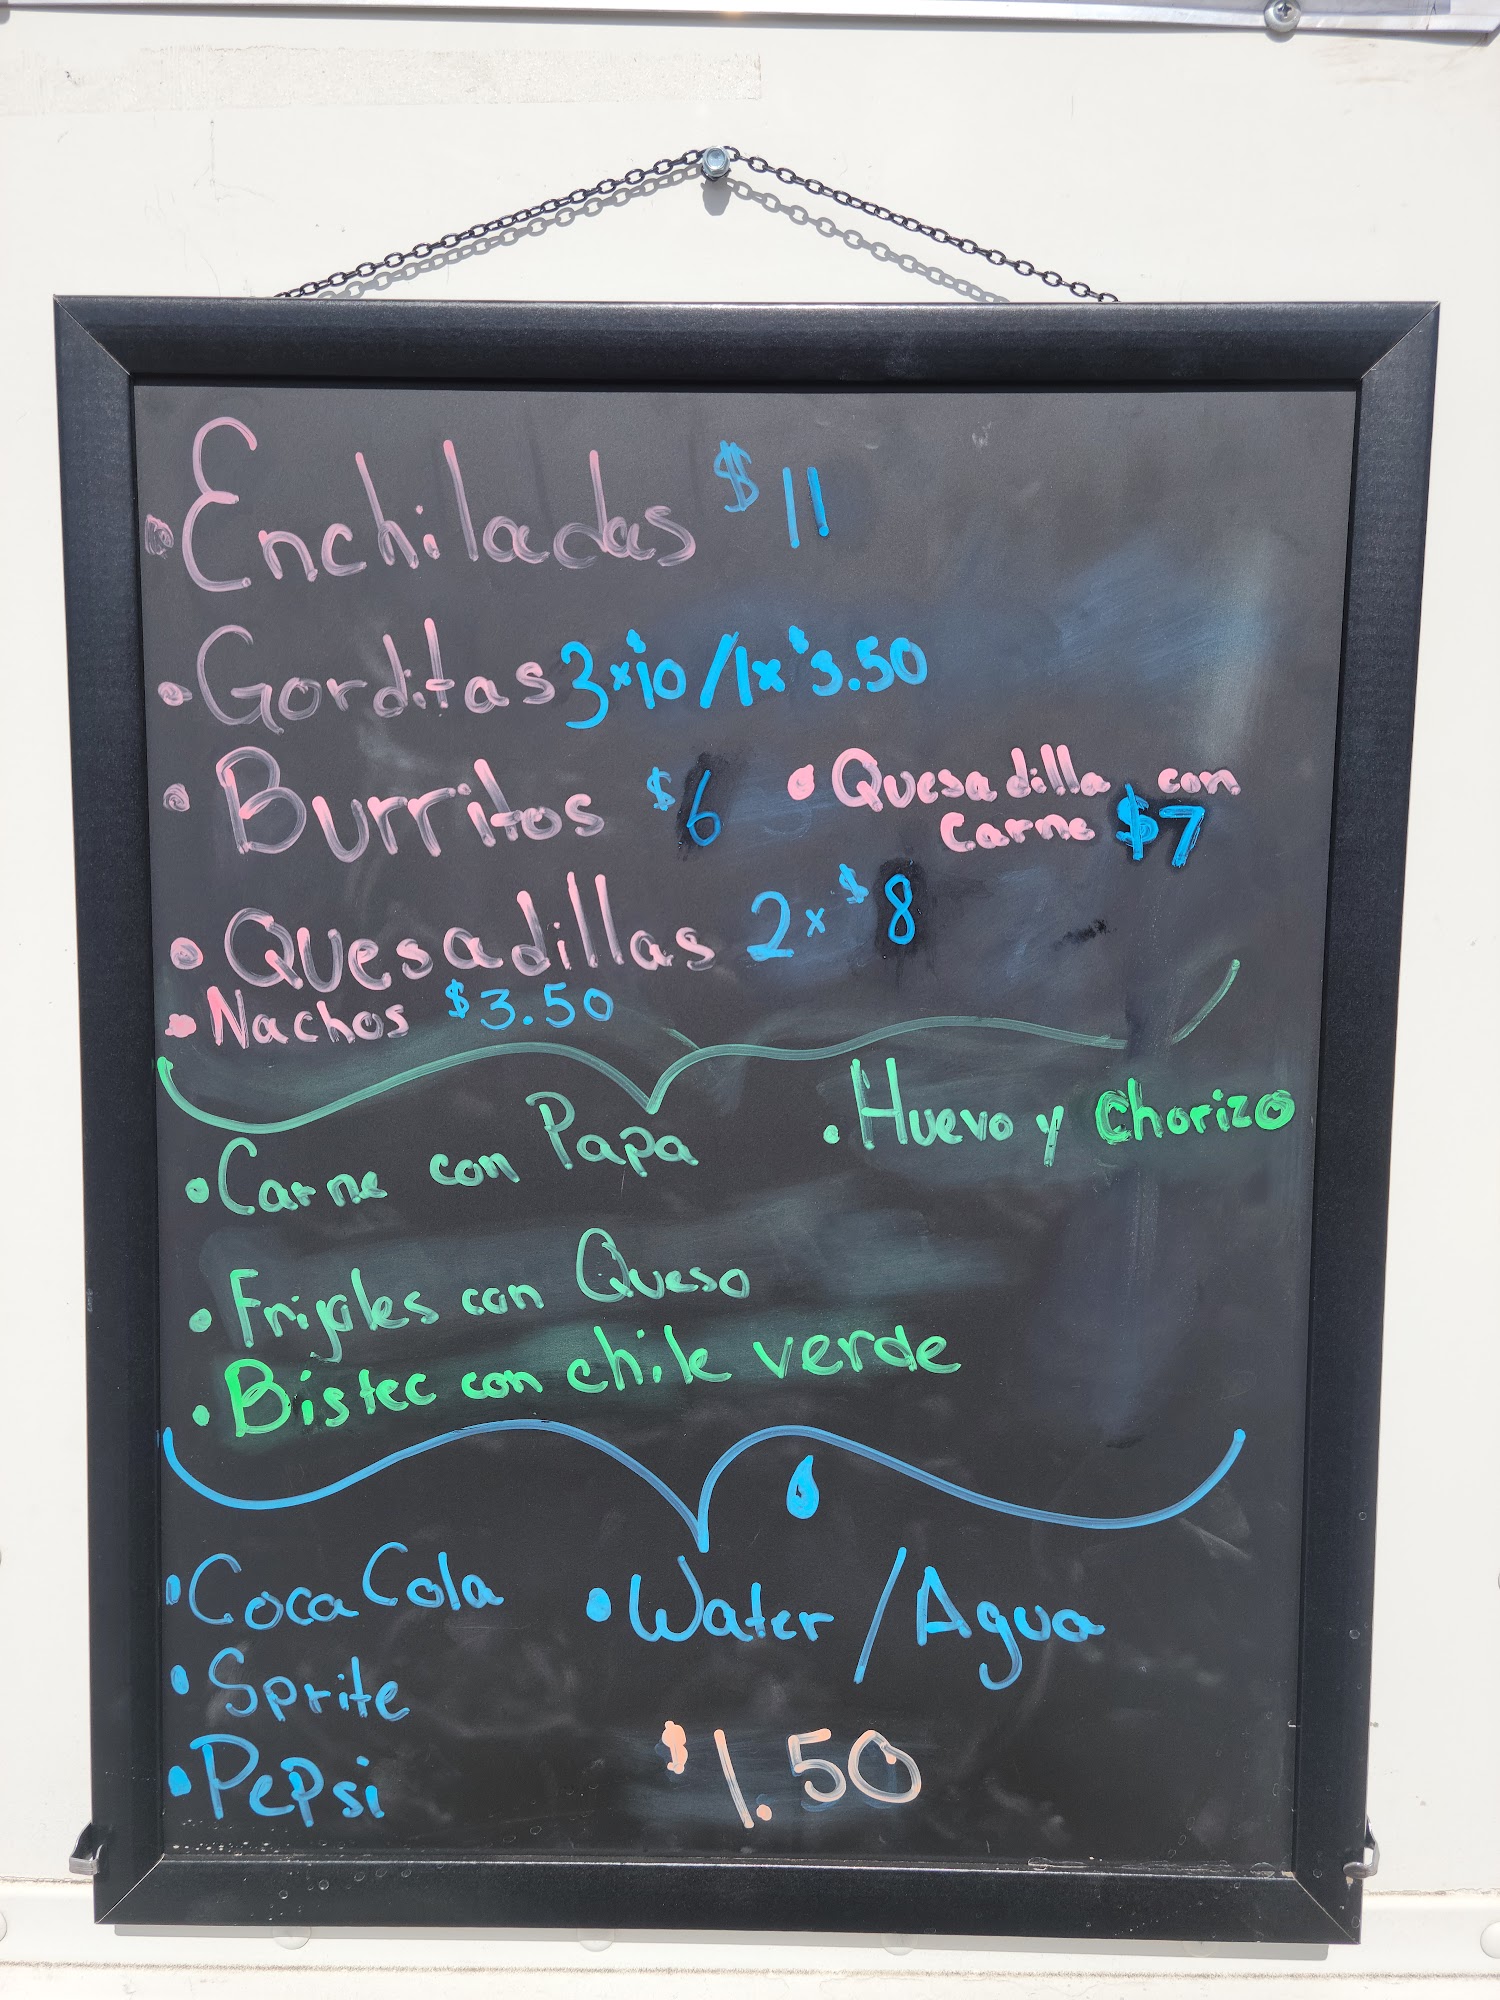 • Enchiladas $11
• Gorditas 3x$10/1x$3.50
• Burritos $6
• Quesadilla con
Carne $7
• Quesadillas 2x$8
• Nachos $3.50
• Carne con Papa
• Huevo y Chorizo
• Frijoles con Queso
• Bistec con chile verde
• Coca Cola
• Water/Agua
• Sprite
• Pepsi
$1.50